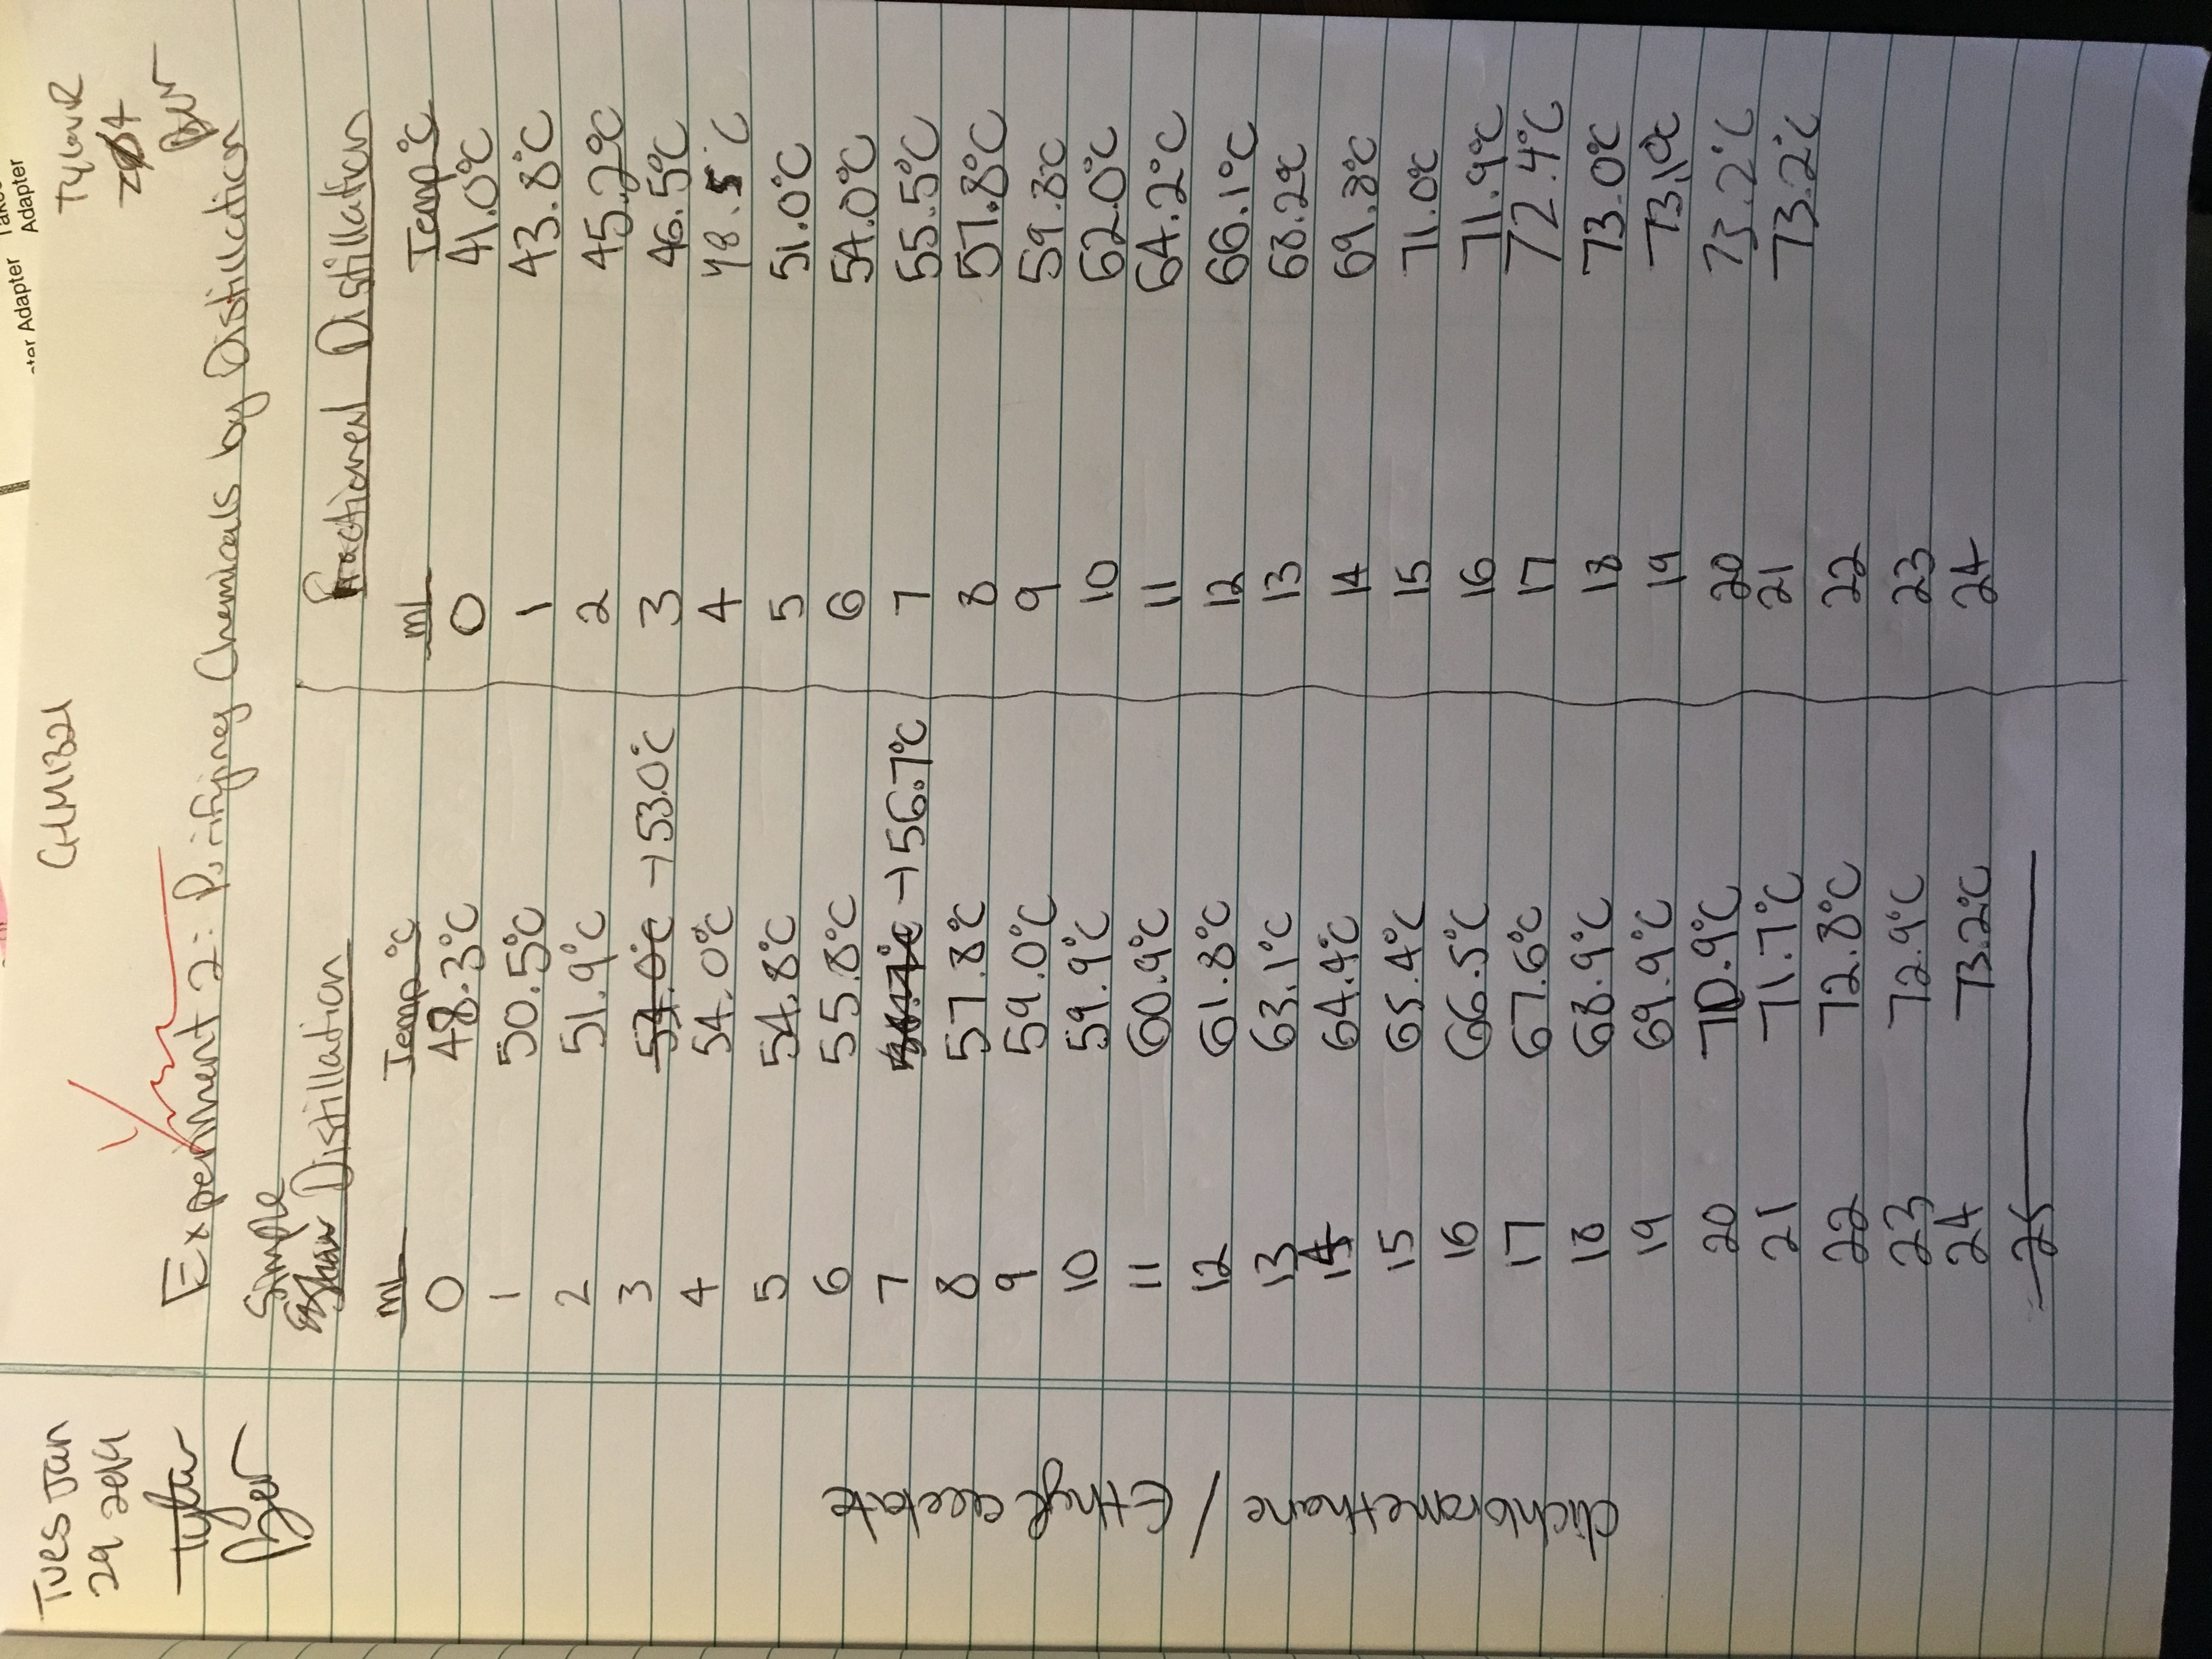 ter Adapter
Adapter
Tues Jan
CHM1321
Experiment 2: Purifying Chemicals by Distillation
Simple
Distillation
Fractional Distillation
mL Temp °C mL Temp °C
0 48.3°C 0 41.0°C
1 50.5°C 1 43.8°C
2 51.9°C 2 45.2°C
3 54.0°C → 53.0°C 3 46.5°C
4 54.0°C 4 48.5°C
5 54.8°C 5 51.0°C
6 55.8°C 6 54.0°C
7 → 56.7°C 7 55.5°C
8 57.8°C 8 57.8°C
9 59.0°C 9 59.8°C
10 59.9°C 10 62.0°C
11 60.9°C 11 64.2°C
12 61.8°C 12 66.1°C
13 63.1°C 13 68.2°C
14 64.4°C 14 69.8°C
15 65.4°C 15 71.0°C
16 66.5°C 16 71.9°C
17 67.6°C 17 72.4°C
18 68.9°C 18 73.0°C
19 69.9°C 19 73.1°C
20 70.9°C 20 73.2°C
21 71.7°C 21 73.2°C
22 72.8°C 22
23 72.9°C 23
24 73.2°C 24
25
dichloromethane / Ethyl acetate